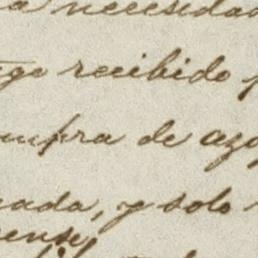 a necesidad
go recibido
mpra de azo
ada, y solo
ense